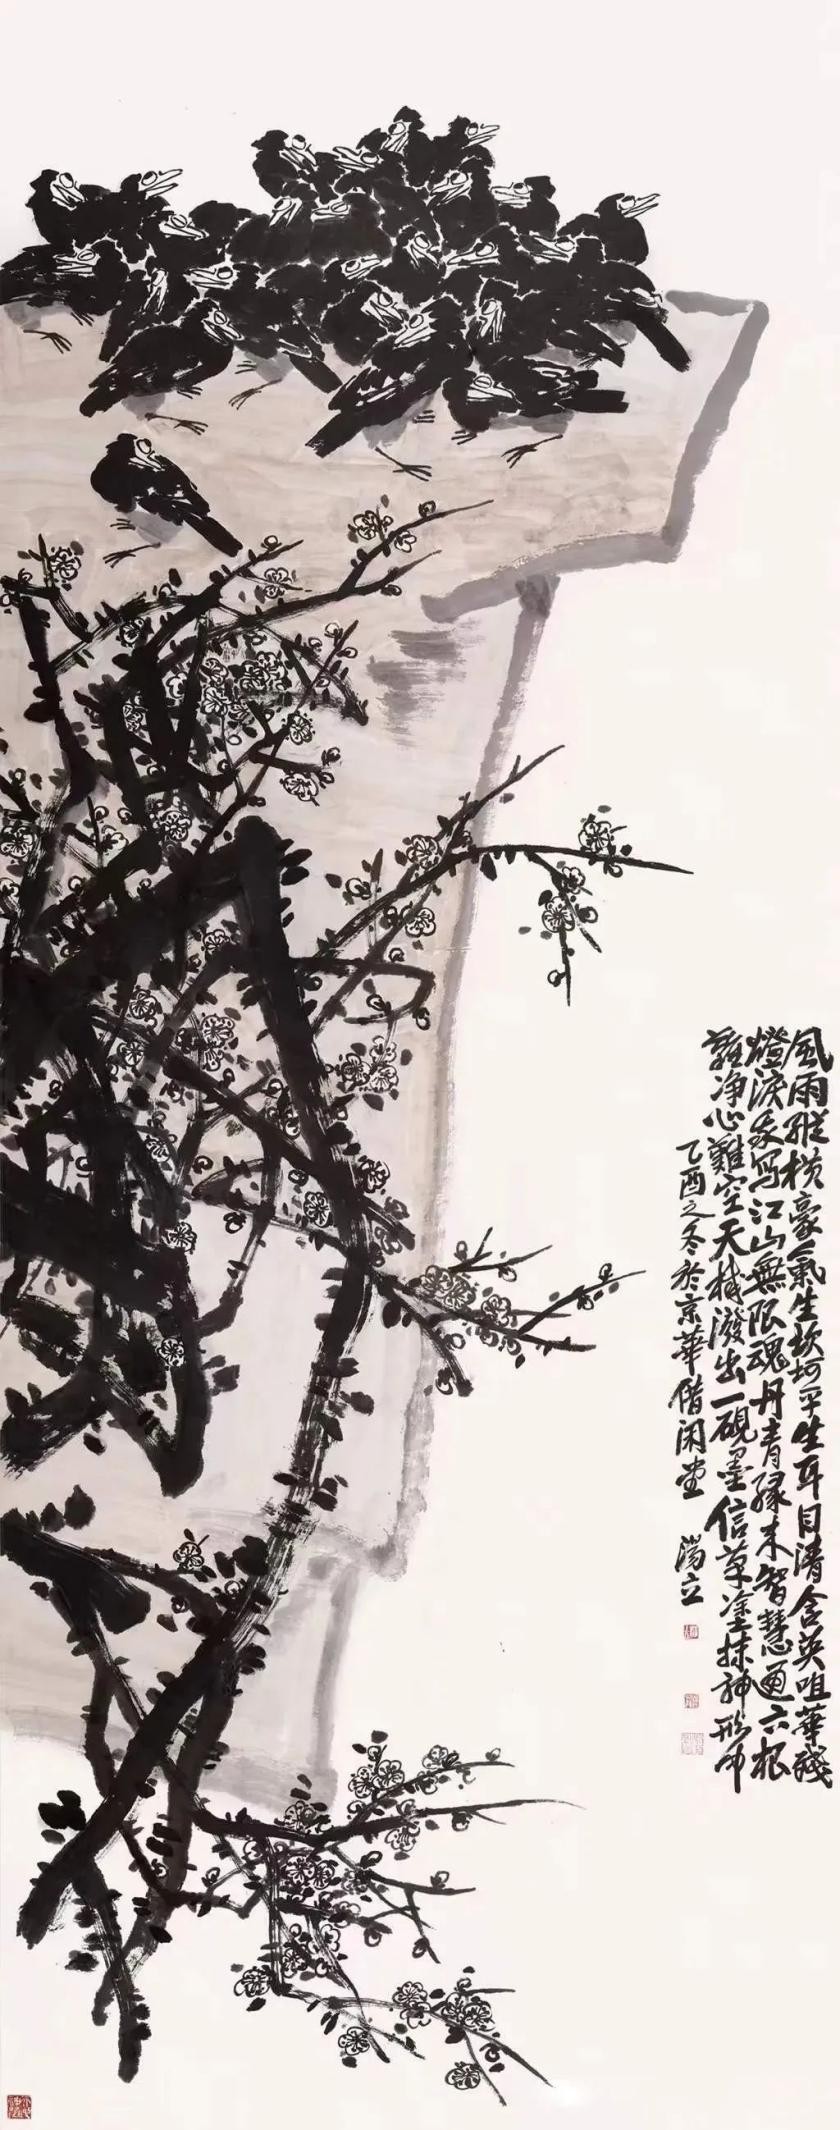 風雨縱橫豪氣生坎坷平生耳目清含英咀華殘
燈淚我写江山無限魂丹青緣来智慧通六根
難净心難空天機潑出一硯墨信筆塗抹神形中
乙酉之冬於京華借闲堂 湯立